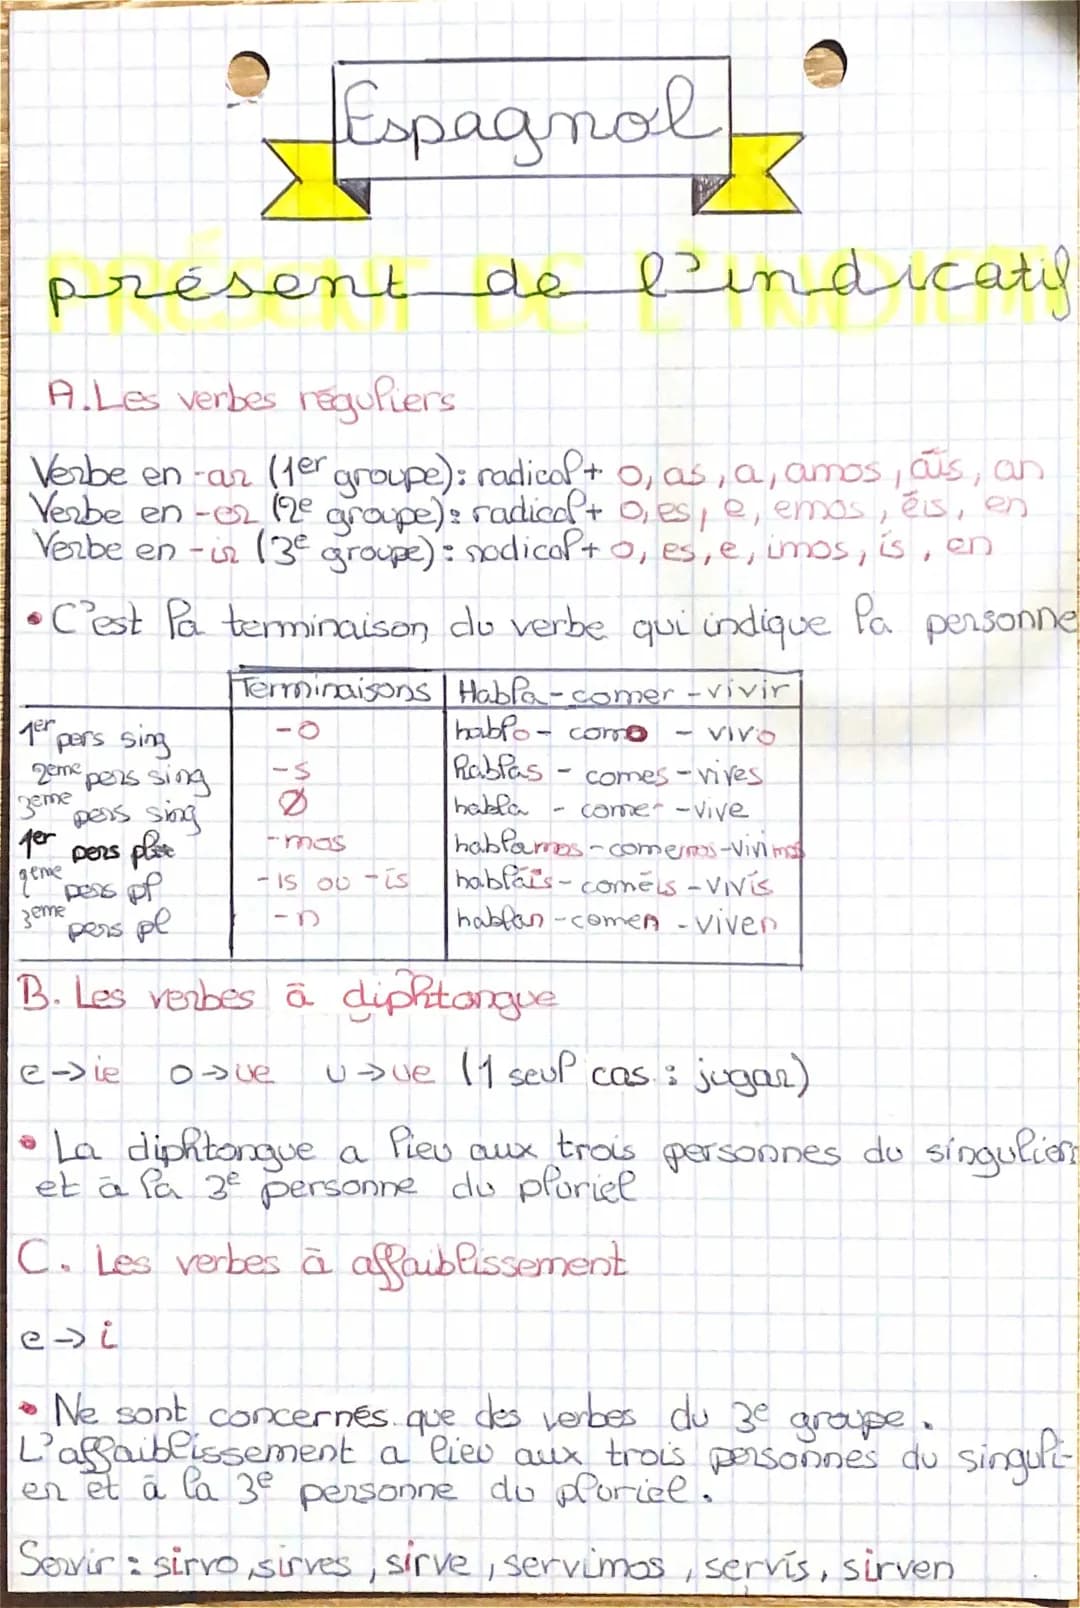 Espagnol
présent de l'indicatif
A. Les verbes réguliers
Verbe en -ar (1er groupe): radical + o, as, a, amos, áis, an
Verbe en -er (2e groupe): radical + o, es, e, emos, éis, en
Verbe en -ir (3e groupe): radical + o, es, e, imos, ís, en
• C'est la terminaison du verbe qui indique la personne
Terminaisons Habla - comer - vivir
1er pers sing -o hablo - como - vivo
2eme pers sing -s hablas - comes - vives
3eme pers sing Ø habla - come - vive
1er pers plu -mos hablamos - comemos - vivimos
2eme pers pl -is ou -ís habláis - coméis - vivís
3eme pers pl -n hablan - comen - viven
B. Les verbes à diphtongue
e → ie o → ue u → ue (1 seul cas : jugar)
• La diphtongue a lieu aux trois personnes du singulier
et à la 3e personne du pluriel
C. Les verbes à affaiblissement
e → i
• Ne sont concernés que des verbes du 3e groupe.
L'affaiblissement a lieu aux trois personnes du singuli-
er et à la 3e personne du pluriel.
Servir : sirvo, sirves, sirve, servimos, servís, sirven